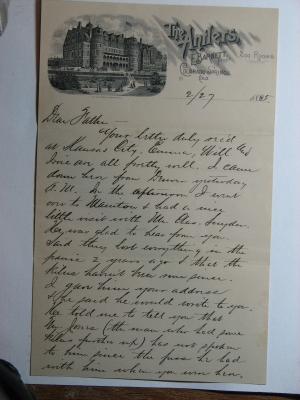 The Antlers
E. Barnett,
200 Rooms
Colorado Springs
Colo
2/27 1895
Dear Father —
Your letter duly rec'd
at Kansas City. Emma, Will and
are all pretty well. I came
down here from Denver yesterday
P.M. In the afternoon I went
over to Manitou & had a nice
little visit with Mr Chas.
He was glad to hear from you.
Said they lost everything in the
panic 2 years ago & that the
Kilns haven't been run since.
I gave him your address
& he said he would write to you.
He told me to tell you that
Jones (the man who had some
Kilns further up) has not spoken
to him since the fuss he had
with him when you were here.